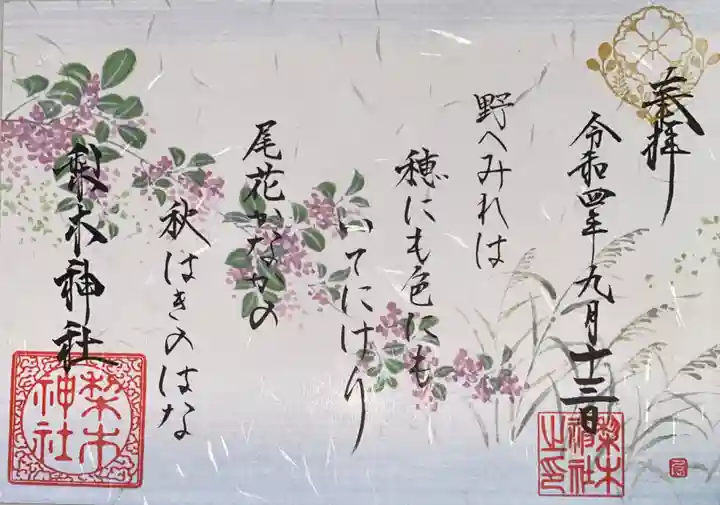 奉拝
令和四年九月十三日
野へみれは
穂にも色にも
いてにけり
尾花かなかの
秋はきのはな
梨木神社
梨木
神社
梨木
神社
之印